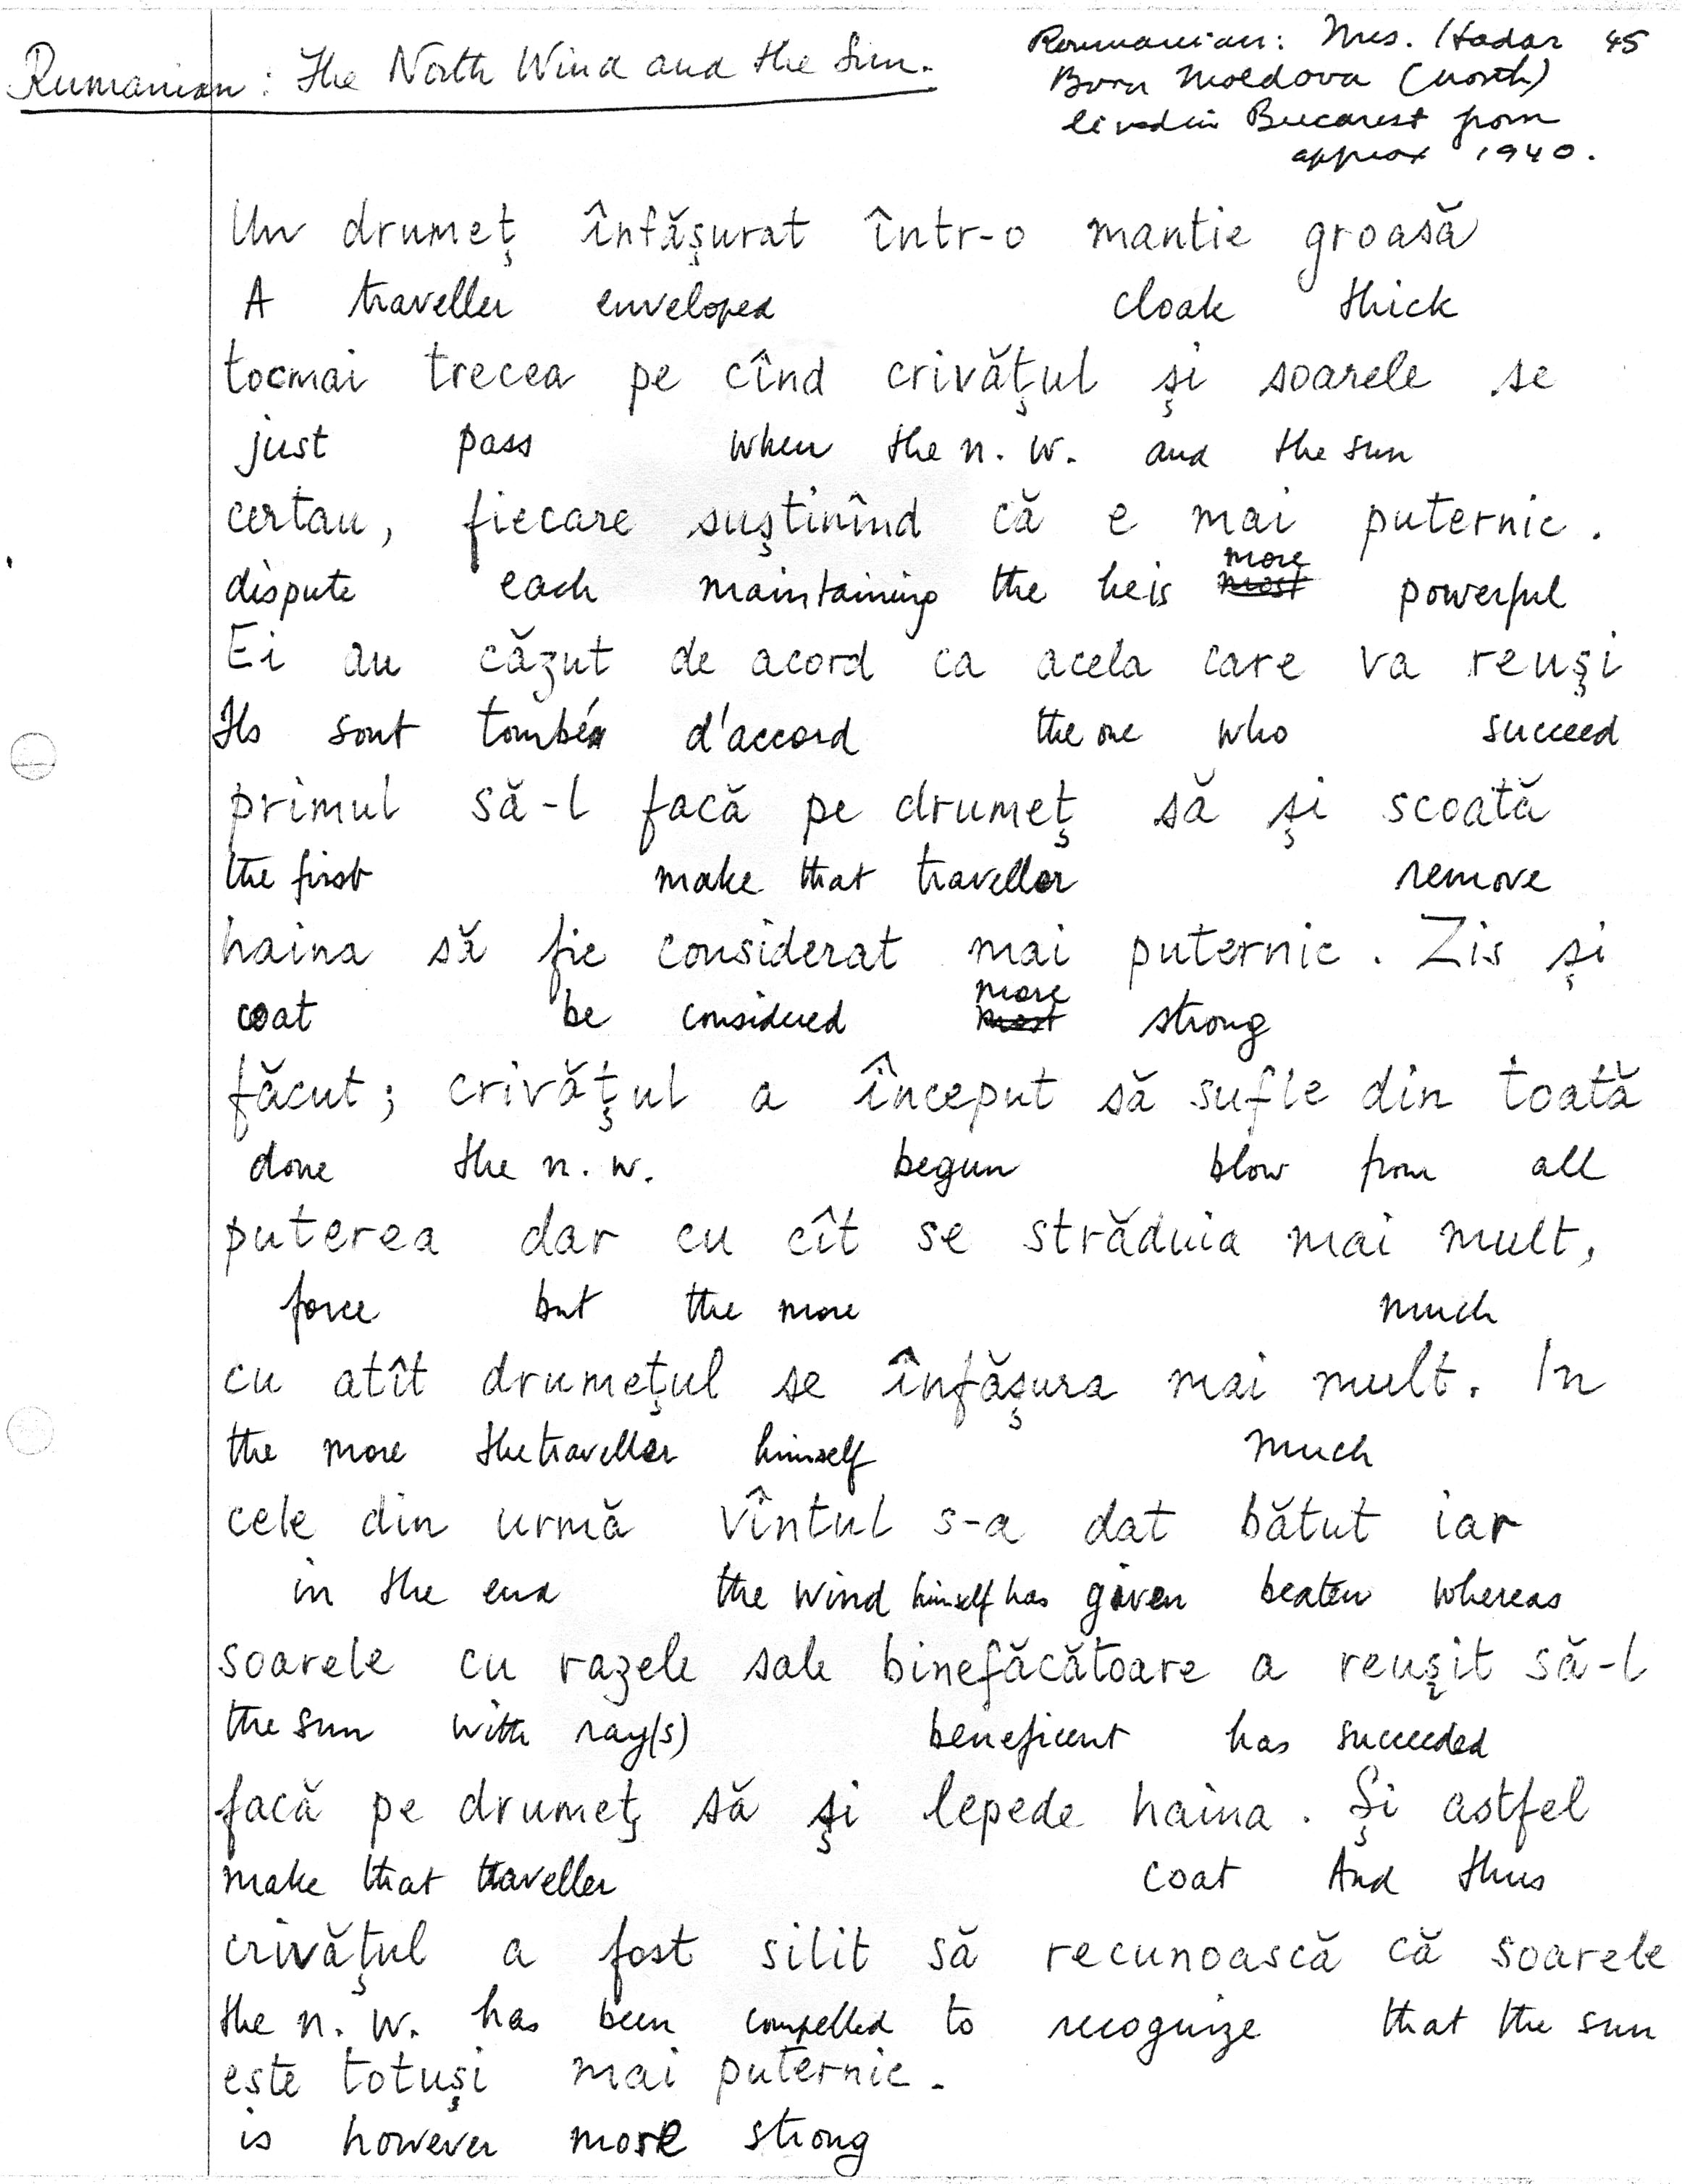 Rumanian: The North Wind and the Sun.
Roumanian: Mrs. Hadar 45
Born Moldova (North)
lived in Bucarest from
approx 1940.
Un drumeţ înfăşurat într-o mantie groasă
A traveller enveloped cloak thick
tocmai trecea pe cînd crivăţul şi soarele se
just pass when the n. w. and the sun
certau, fiecare susţinînd că e mai puternic.
dispute each maintaining the he is more most powerful
Ei au căzut de acord ca acela care va reuşi
Ils sont tombés d'accord the one who succeed
primul să-l facă pe drumeţ să şi scoată
the first make that traveller remove
haina să fie considerat mai puternic. Zis şi
coat be considered more most strong
făcut; crivăţul a început să sufle din toată
done the n. w. begun blow from all
puterea dar cu cît se străduia mai mult,
force but the more much
cu atît drumeţul se înfăşura mai mult. In
the more the traveller himself much
cele din urmă vîntul s-a dat bătut iar
in the end the wind himself has given beaten whereas
soarele cu razele sale binefăcătoare a reuşit să-l
the sun with ray(s) beneficent has succeeded
facă pe drumeţ să şi lepede haina. Şi astfel
make that traveller coat And thus
crivăţul a fost silit să recunoască că soarele
the n. w. has been compelled to recognize that the sun
este totuşi mai puternic.
is however more strong